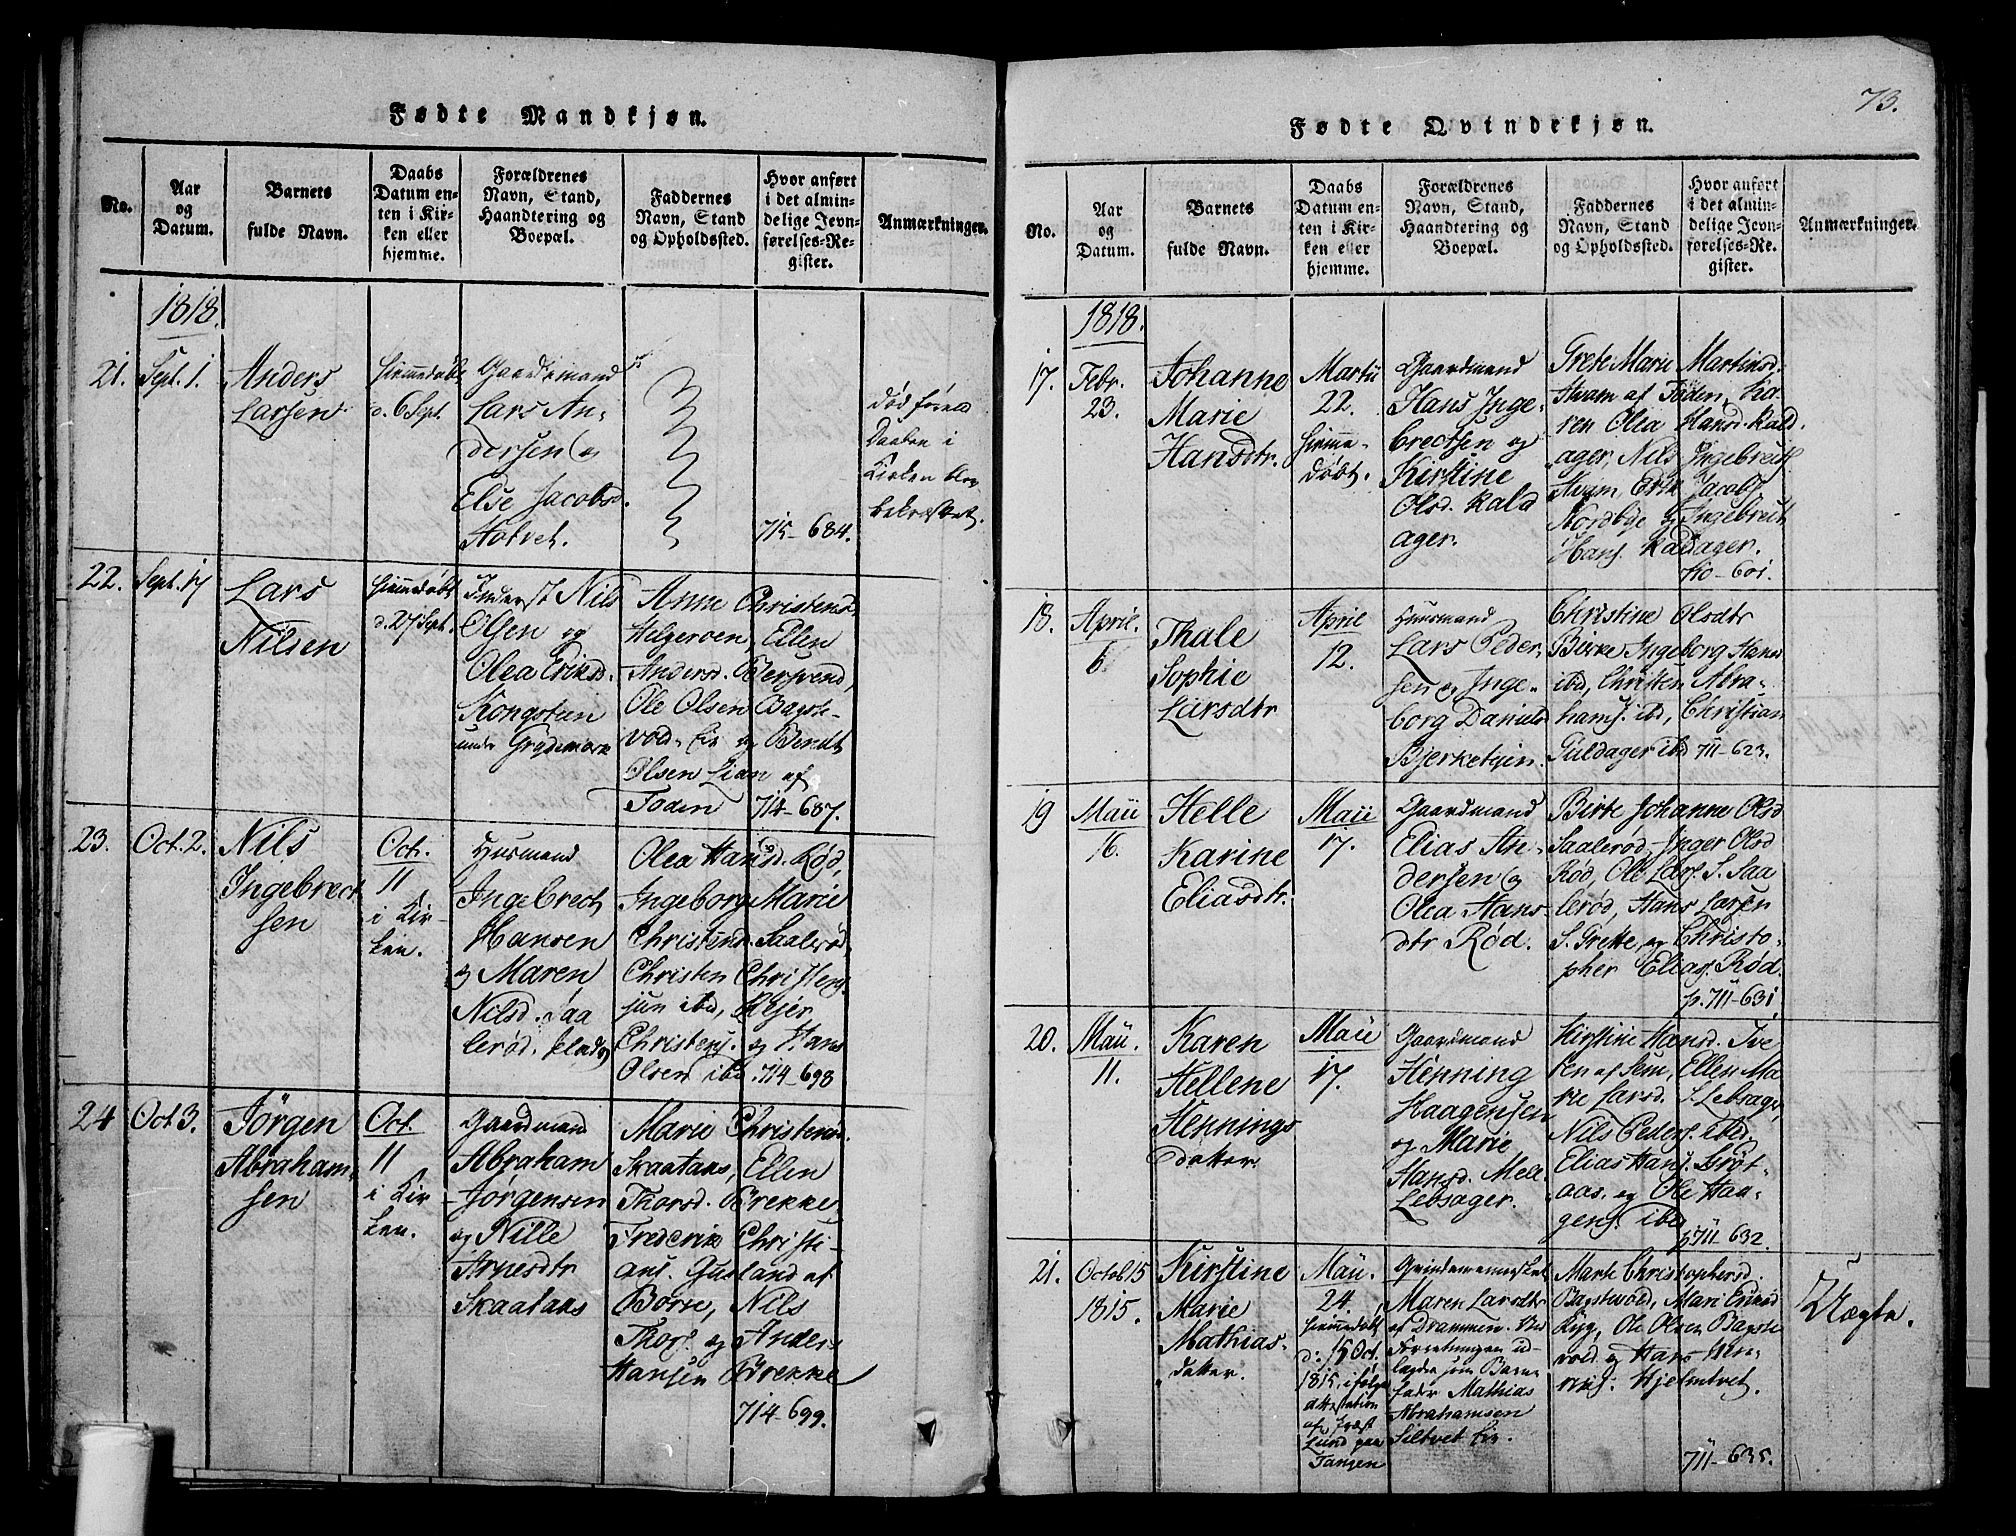 Fødte Mandkjøn.
No.
Aar
og
Datum.
Barnets
fulde Navn.
Daabs
Datum en-
ten i Kir-
ken eller
hjemme.
Forældrenes
Navn, Stand,
Haandtering og
Boepæl.
Faddernes
Navn, Stand
og Opholdssted.
Hvor anført
i det almin-
delige Jevn-
førelses-Re-
gister.
Anmærkninger.
1818.
21.
Sept. 1.
Anders
Larsen
Hiemmedøbt
d. 6 Sept.
Gaardmand
Lars An-
dersen og
Else Jacobsd.
715-684.
død førend
Daaben i
Kirken blev
bekræftet.
22.
Sept. 17
Lars
Nilsen
Hiemmedøbt
d. 27 Sept.
Inderst Nils
Olsen og
Olea Eriksd.
Kongsteen
under Grydemork
Anne Christensd.
Helgeroen, Ellen
Andersd.
Ole Olsen Bagste-
vold
og Bendt
Olsen Lian af
Foden
714-687.
23.
Oct. 2.
Nils
Ingebrect
sen
Oct.
11
i Kir-
ken.
Husmand
Ingebrect
Hansen
og Maren
Nilsd. Saa
lerød
Olea Hansd. Rød,
Ingeborg Marie
Christensd. Saalerød
Christen Christens.
jun ibd, Rejer
Christens. og Hans
Olsen ibd.
714-698
24
Oct 3.
Jørgen
Abraham-
sen
Oct.
11
i Kir
ken.
Gaardmand
Abraham
Jørgensen
og Nille
Arnesdtr
Skaataas
Marie Christensd.
Skaataas, Ellen
Thorsd. Brekke
Frederik Christi-
ans. Gusland af
Borre, Nils
Thors. og Anders
Hansen Brekke
714-699.
73.
Fødte Qvindekjøn.
No.
Aar
og
Datum.
Barnets
fulde Navn.
Daabs
Datum en-
ten i Kir-
ken eller
hjemme.
Forældrenes
Navn, Stand,
Haandtering og
Boepæl.
Faddernes
Navn, Stand
og Opholdssted.
Hvor anført
i det almin-
delige Jevn-
førelses-Re-
gister.
Anmærkninger.
1818.
17.
Febr.
23.
Johanne
Marie
Hansdtr.
Martii
22.
Hiemme-
døbt.
Gaardmand
Hans Inge-
brectsen og
Kirstine
Olsd. Kald
ager.
Grete Marie Martinsd.
Hvam af Foden, Ka-
ren Olea Hansd. Kald
ager, Nils Ingebrects.
Hvam, Erik Jacobs.
Nordbye og Ingebrect
Hans. Kaldager.
710-601.
18.
April.
6.
Thale
Sophie
Larsdtr
April
12.
Husmand
Lars Peder-
sen og Inge-
borg Danielsd
Christine Olsdtr
Birke Ingeborg Hansd
ibd, Christen Abra-
hams. ibd, Christian
Guldager ibd
711-623.
19
Maii
16.
Helle
Karine
Eliasdtr.
Maii
17.
Gaardmand
Elias An-
dersen og
Olea Hans-
dtr Rød.
Birte Johanne Olsd
Saalerød, Inger Olsd
Rød, Ole Lars. S. Saa
lerød, Hans Larsen
S. Grette, og Christo-
pher Elias. Rød.
p. 711-631
20.
Maii.
11.
Karen
Hellene
Hennings
datter.
Maii
17.
Gaardmand
Henning
Haagensen
og Marie
Hansd. Mell.
Lebsager.
Kirstine Hansd. Tve
ten af Sem, Ellen Ma
rie Larsd. S. Lebsager,
Nils Peders. ibd.
Elias Hans. Brøt-
aas. og Ole Haa-
gens. ibd
p. 711-632.
21.
Octob 15
1815.
Kirstine
Marie
Mathias-
datter.
Maii.
24.
Hiemmedøbt
d: 15 Oct.
1815, i følge
attestation
af Præst
Lund paa
Tangen
Qvindemennesket
Maren Larsdtr
af Drammen. Ved
Forretningen ud-
lagde som Barne
fader Mathias
Abrahamsen
Siltvet
Marte Christophersd.
Bagstvold, Mari Eriksd
Ryg, Ole Olsen Bagste
vold og Hans Hen-
riks. Hjelmtvet.
711-635.
Uægte.